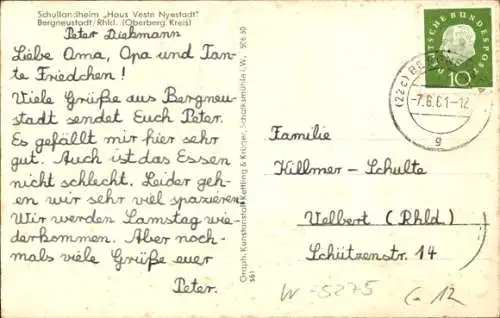 Schullandheim „Haus Veste Nyestadt"
Bergneustadt/Rhld. (Oberberg. Kreis)
Peter Diekmann
Liebe Oma, Opa und Tan-
te Friedchen!
Viele Grüße aus Bergneu-
stadt sendet Euch Peter.
Es gefällt mir hier sehr
gut. Auch ist das Essen
nicht schlecht. Leider geh-
en wir sehr viel spazieren.
Wir werden Samstag wie-
derkommen. Aber noch-
mals viele Grüße euer
Peter.
Graph. Kunstanstalt Kettling & Krüger, Schalksmühle i.W. 506 30
S61
DEUTSCHE BUNDESPOST
10
(22c) BERG
-7.6.61-12
g
Familie
Killmer-Schulte
Velbert (Rhld)
Schützenstr. 14
W-5275